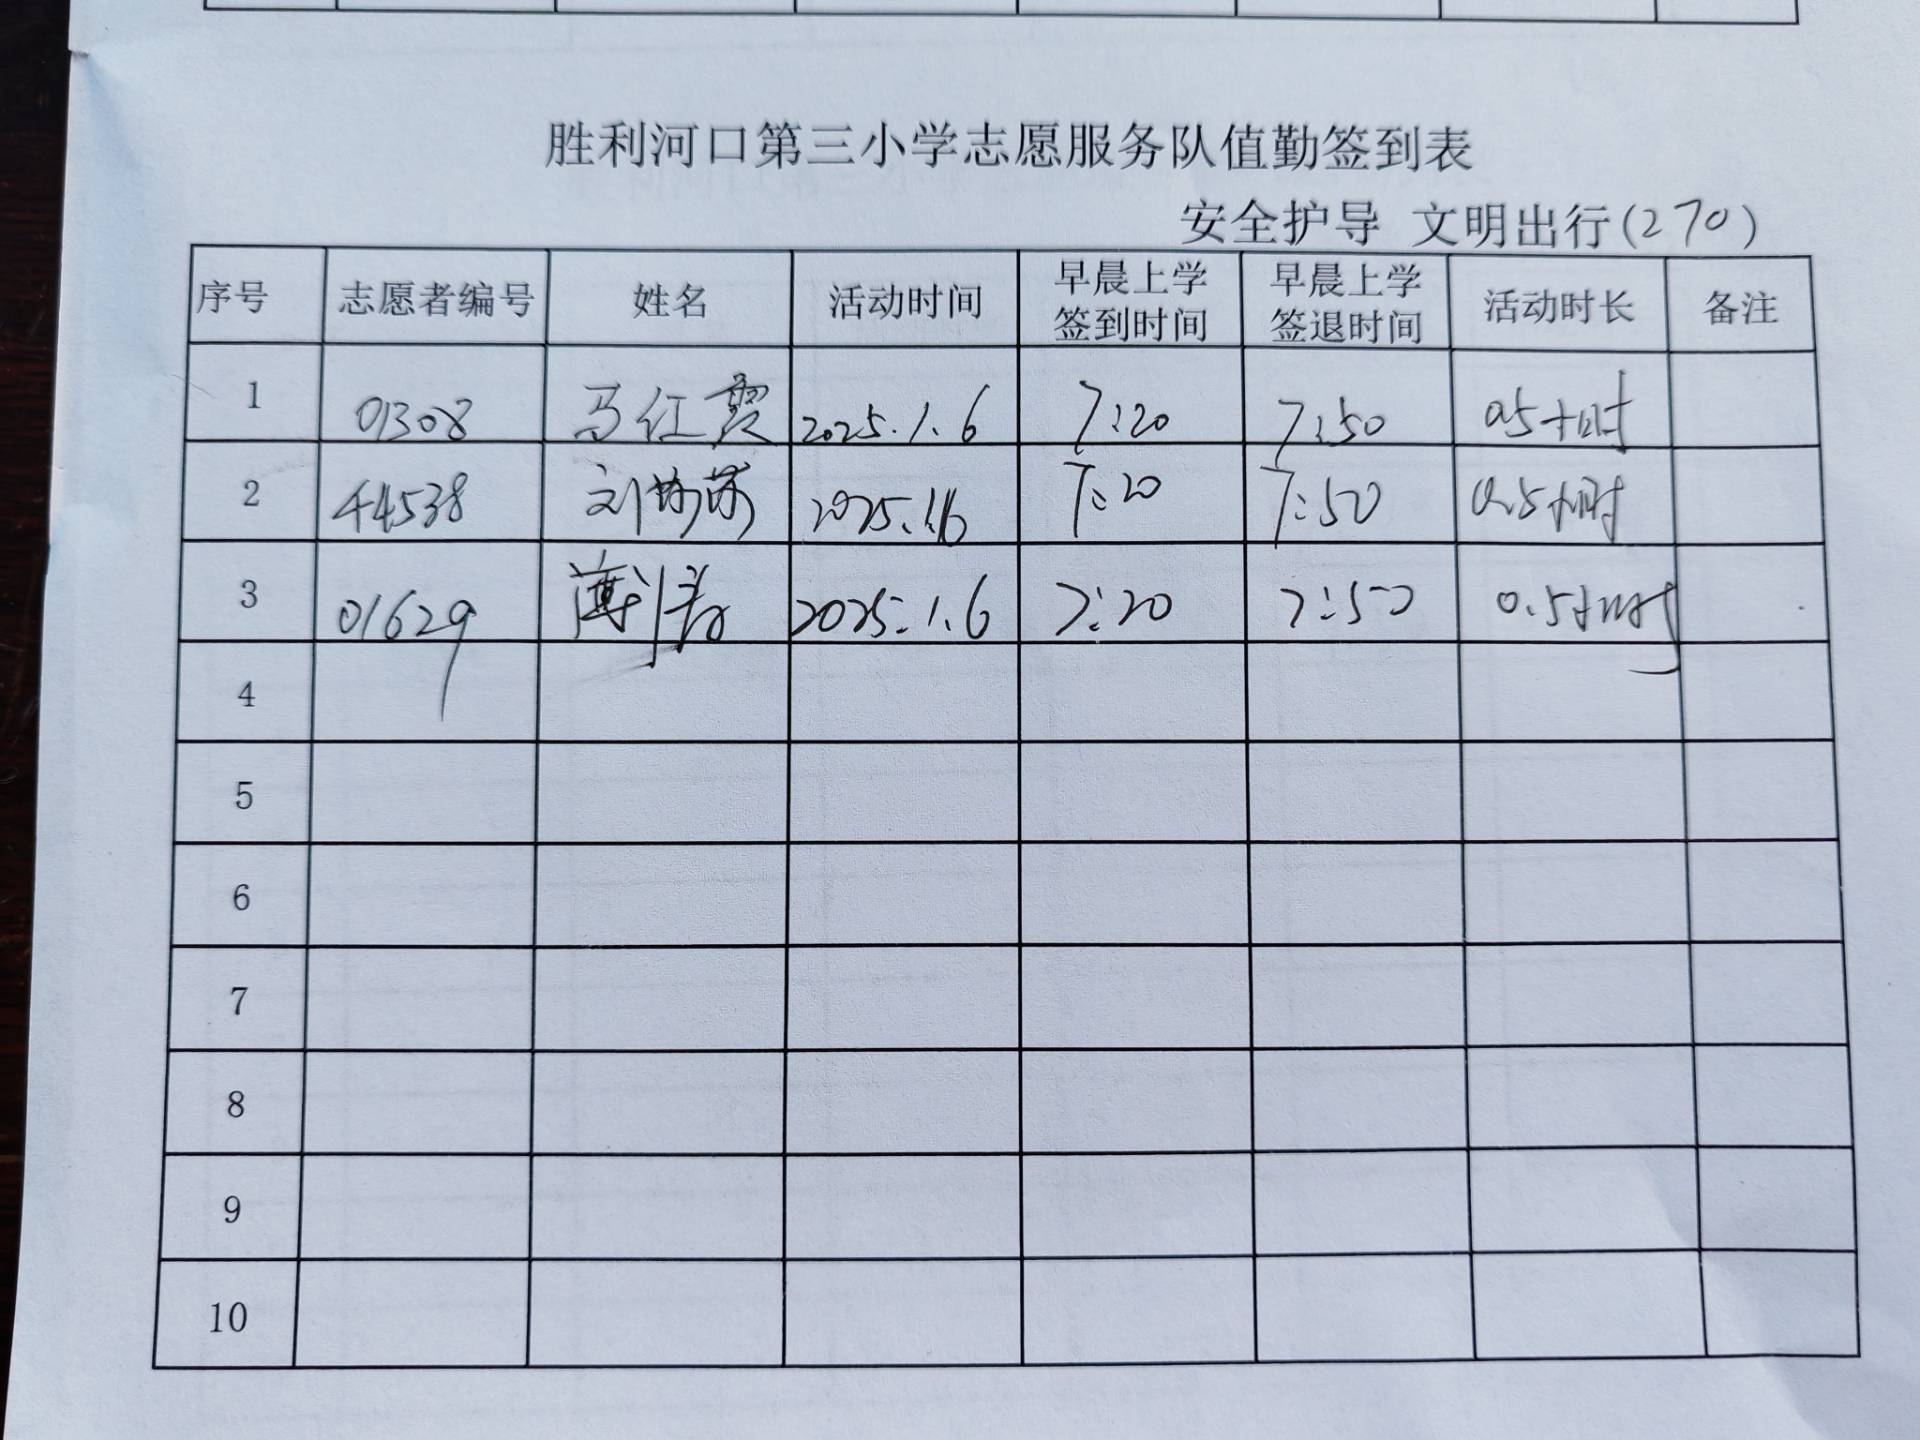 胜利河口第三小学志愿服务队值勤签到表
安全护导 文明出行(270)
序号 志愿者编号 姓名 活动时间 早晨上学签到时间 早晨上学签退时间 活动时长 备注
1 01308 马红霞 2025.1.6 7:20 7:50 0.5小时
2 44538 刘莎莎 2025.1.6 7:20 7:50 0.5小时
3 01629 2025.1.6 7:20 7:50 0.5小时
4
5
6
7
8
9
10